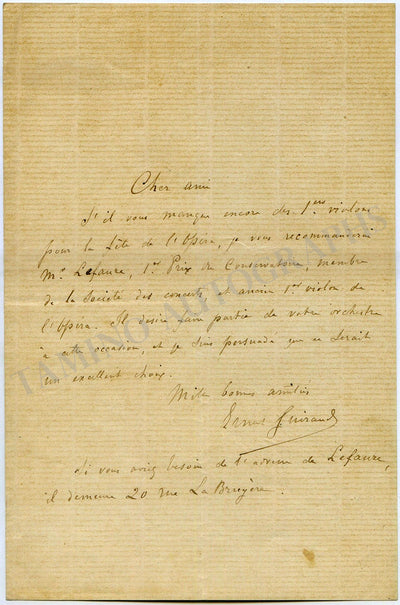 Cher ami
S'il vous manque encore des 1ers violons
pour la fête de l'Opéra, je vous recommanderai
Mr Lefaure, 1er Prix du Conservatoire, membre
de la Société des concerts, ancien 1er violon de
l'Opéra. Il désire faire partie de votre orchestre
à cette occasion, et je suis persuadé que ce serait
un excellent choix.
Mille bonnes amitiés
Ernest Guiraud
Si vous aviez besoin de l'adresse de Lefaure,
il demeure 20 rue La Bruyère.
TAMINO AUTOGRAPHS